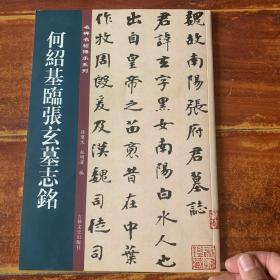 魏故南陽張府君墓誌
君諱玄字黑女南陽白水人也
出自皇帝之苗裔昔在中葉
作牧周殷爰及漢魏司徒司
名碑名帖傳承系列
何紹基臨張玄墓志銘
編
吉林文史出版社